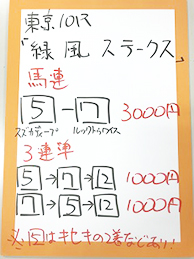 東京10R
「緑風ステークス」
馬連
5 - 7 3000円
スズカディープ ルックトゥワイス
3連単
5→7→12 1000円
7→5→12 1000円
※12はキセキの2着などあり!